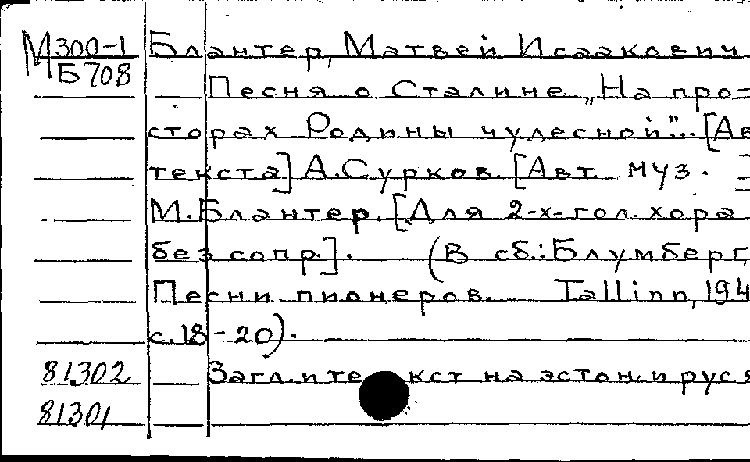 М300-1 Блантер, Матвей Исаакович
Б708
Песня о Сталине „На про-
сторах Родины чудесной". [Ав
текста] А.Сурков. [Авт. муз.]
М.Блантер. [Для 2-х-гол. хора
без сопр.]. (В сб.: Блумберг,
Песни пионеров. Tallinn, 194
с.18-20).
81302 Загл. и текст на эстон. и рус. я
81301